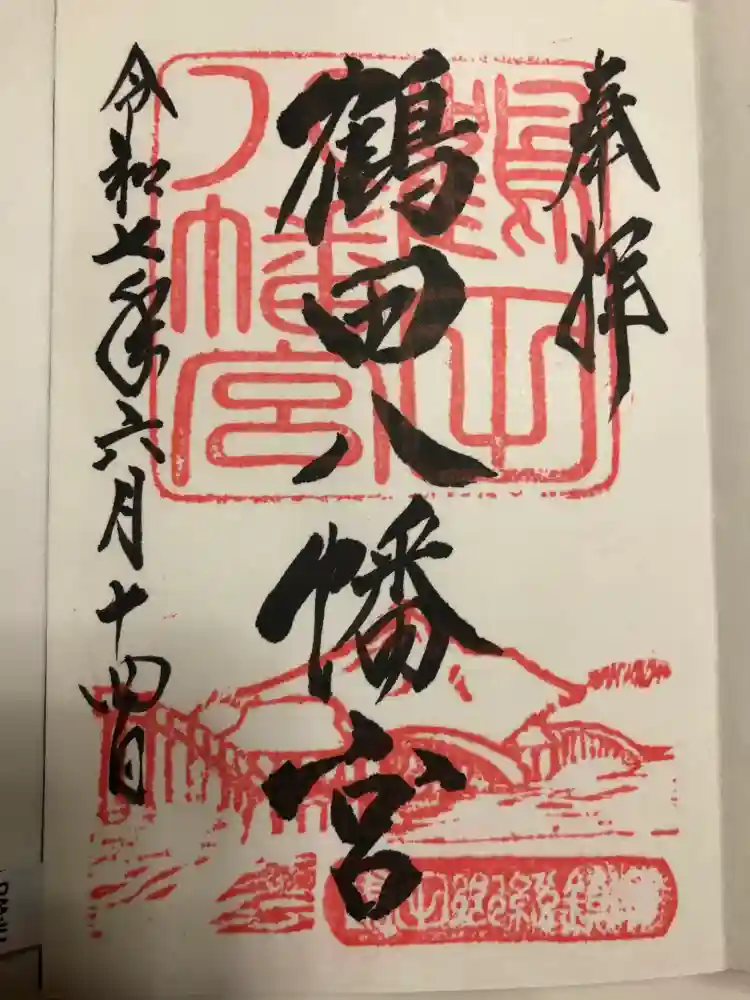 奉拝
鶴田八幡宮
令和七年六月十四日
鶴田
八幡宮